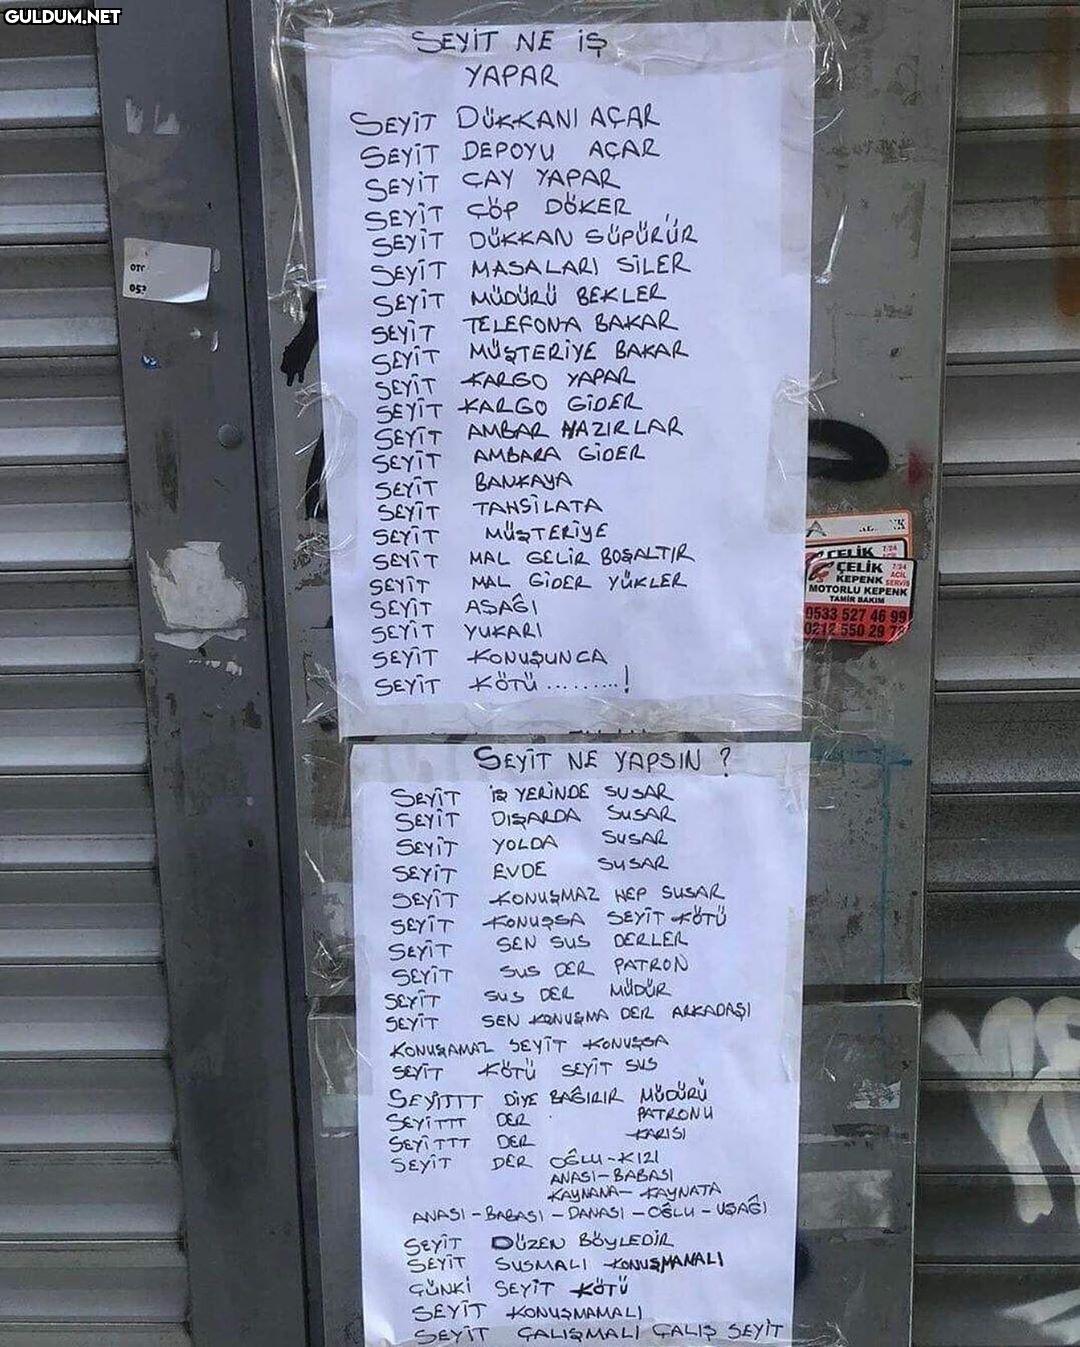 GULDUM.NET
SEYİT NE İŞ
YAPAR
SEYİT DÜKKANI AÇAR
SEYİT DEPOYU AÇAR
SEYİT ÇAY YAPAR
SEYİT ÇÖP DÖKER
SEYİT DÜKKAN SÜPÜRÜR
SEYİT MASALARI SİLER
SEYİT MÜDÜRÜ BEKLER
SEYİT TELEFONA BAKAR
SEYİT MÜŞTERİYE BAKAR
SEYİT KARGO YAPAR
SEYİT KARGO GİDER
SEYİT AMBAR HAZIRLAR
SEYİT AMBARA GİDER
SEYİT BANKAYA
SEYİT TAHSİLATA
SEYİT MÜŞTERİYE
SEYİT MAL GELİR BOŞALTIR
SEYİT MAL GİDER YÜKLER
SEYİT AŞAĞI
SEYİT YUKARI
SEYİT KONUŞUNCA
SEYİT KÖTÜ .........!
SEYİT NE YAPSIN ?
SEYİT İŞ YERİNDE SUSAR
SEYİT DIŞARDA SUSAR
SEYİT YOLDA SUSAR
SEYİT EVDE SUSAR
SEYİT KONUŞMAZ HEP SUSAR
SEYİT KONUŞSA SEYİT KÖTÜ
SEYİT SEN SUS DERLER
SEYİT SUS DER PATRON
SEYİT SUS DER MÜDÜR
SEYİT SEN KONUŞMA DER ARKADAŞI
KONUŞAMAZ SEYİT KONUŞSA
SEYİT KÖTÜ SEYİT SUS
SEYİTTT DİYE BAĞIRIR MÜDÜRÜ
SEYİTTT DER PATRONU
SEYİTTT DER KARISI
SEYİT DER OĞLU-KIZI
ANASI-BABASI
KAYNANA-KAYNATA
ANASI-BABASI-DANASI-OĞLU-UŞAĞI
SEYİT DÜZEN BÖYLEDİR
SEYİT SUSMALI KONUŞMANALI
ÇÜNKİ SEYİT KÖTÜ
SEYİT KONUŞMAMALI
SEYİT ÇALIŞMALI ÇALIŞ SEYİT
OTO
053
ÇELİK 7/24
ÇELİK 7/24
KEPENK ACİL SERVİS
MOTORLU KEPENK
TAMİR BAKIM
0533 527 46 99
0212 550 29